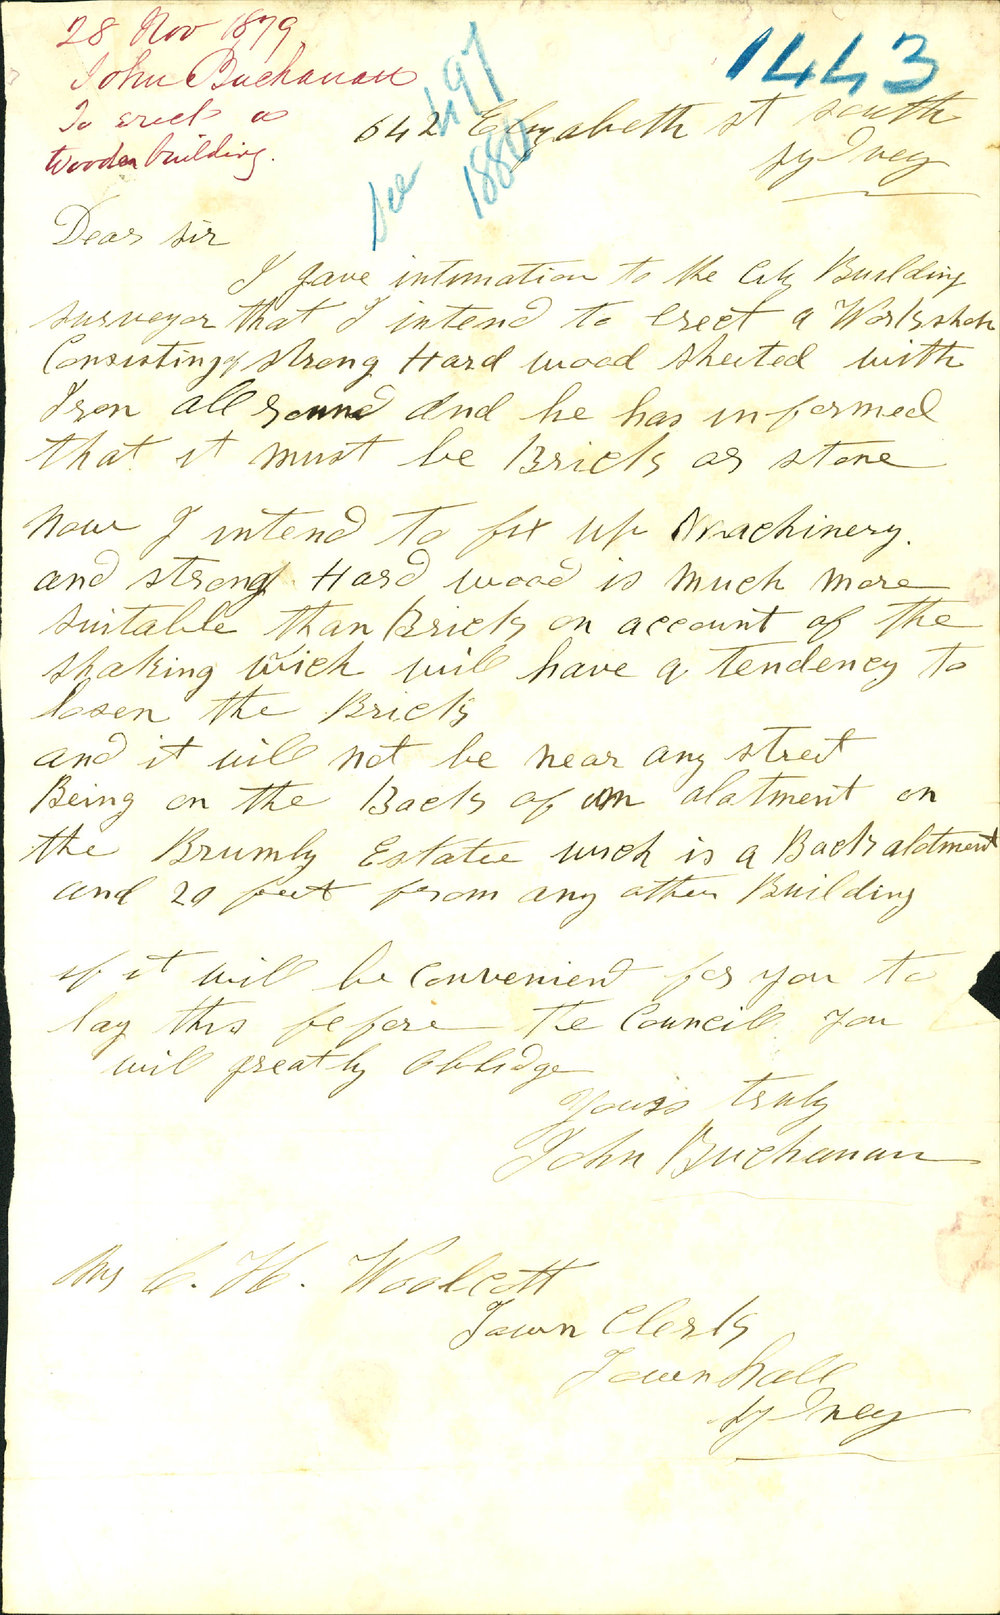 28 Nov 1879
John Buchanan
To erect a
wooden building.
1443
see 497
1880
642 Elizabeth st south
Sydney
Dear sir
I gave intimation to the City Building
surveyor that I intend to Erect a Workshop
Consisting of strong Hard wood sheeted with
Iron all round and he has informed
that it must be Brick or stone
Now I intend to fix up Machinery.
and strong Hard wood is much more
suitable than Brick on account of the
shaking wich will have a tendency to
losen the Brick
and it will not be near any street
Being on the Back of an alatment on
the Brumby Estatee wich is a Back alotment
and 20 feet from any other Building
if it will be Convenient for you to
lay this before the Council you
will greatly oblidge
Yours truly
John Buchanan
Mr C. H. Woolcott
Town Clerk
Town hall
Sydney